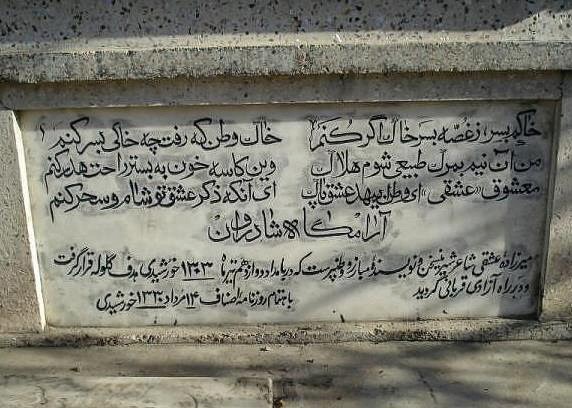 خاکم بسر، ز غصه بسر خاک اگر کنم خاک وطن که رفت چه خاکی بسر کنم؟
من آن نیم بمرگ طبیعی شوم هلاک وین کاسه خون به بستر راحت هدر کنم
معشوق «عشقی» ای وطن ای مهد عشق پاک ای آنکه ذکر عشق تو شام و سحر کنم
آرامگاه شادروان
میرزاده عشقی شاعر شیرین سخن و نویسنده مبارز و وطنپرست که در بامداد دوازدهم تیرماه ۱۳۰۳ خورشیدی هدف گلوله قرار گرفت
و در راه آزادی قربانی گردید باهتمام روزنامه اصناف ۱۴ مرداد خورشیدی